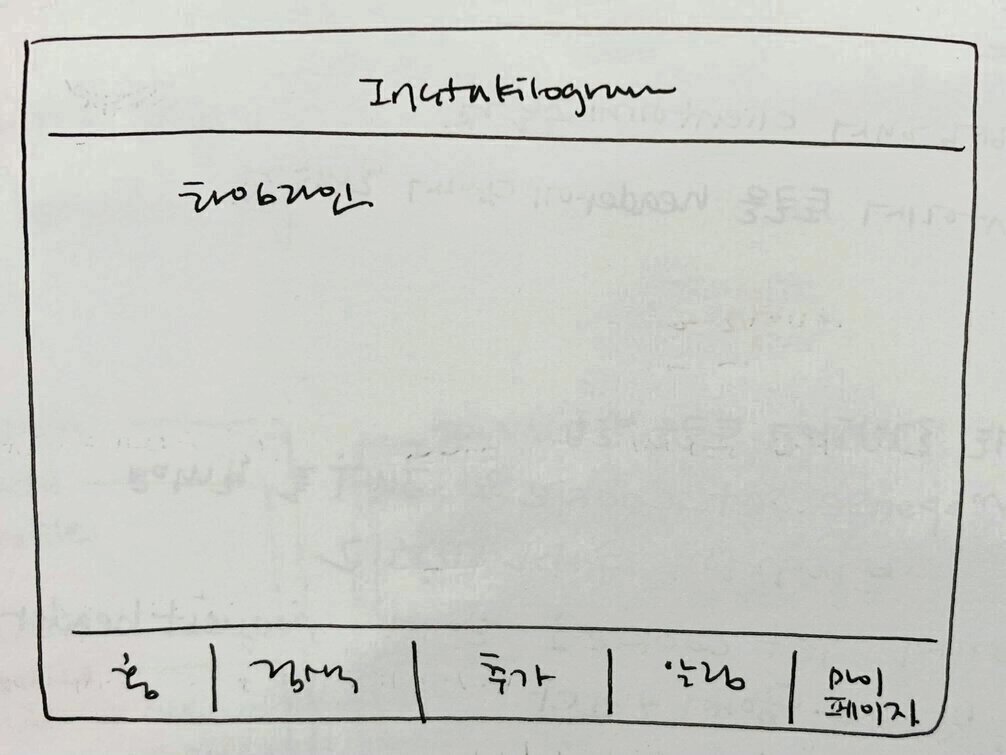 Instakilogram
타임라인
홈
검색
추가
알림
마이
페이지